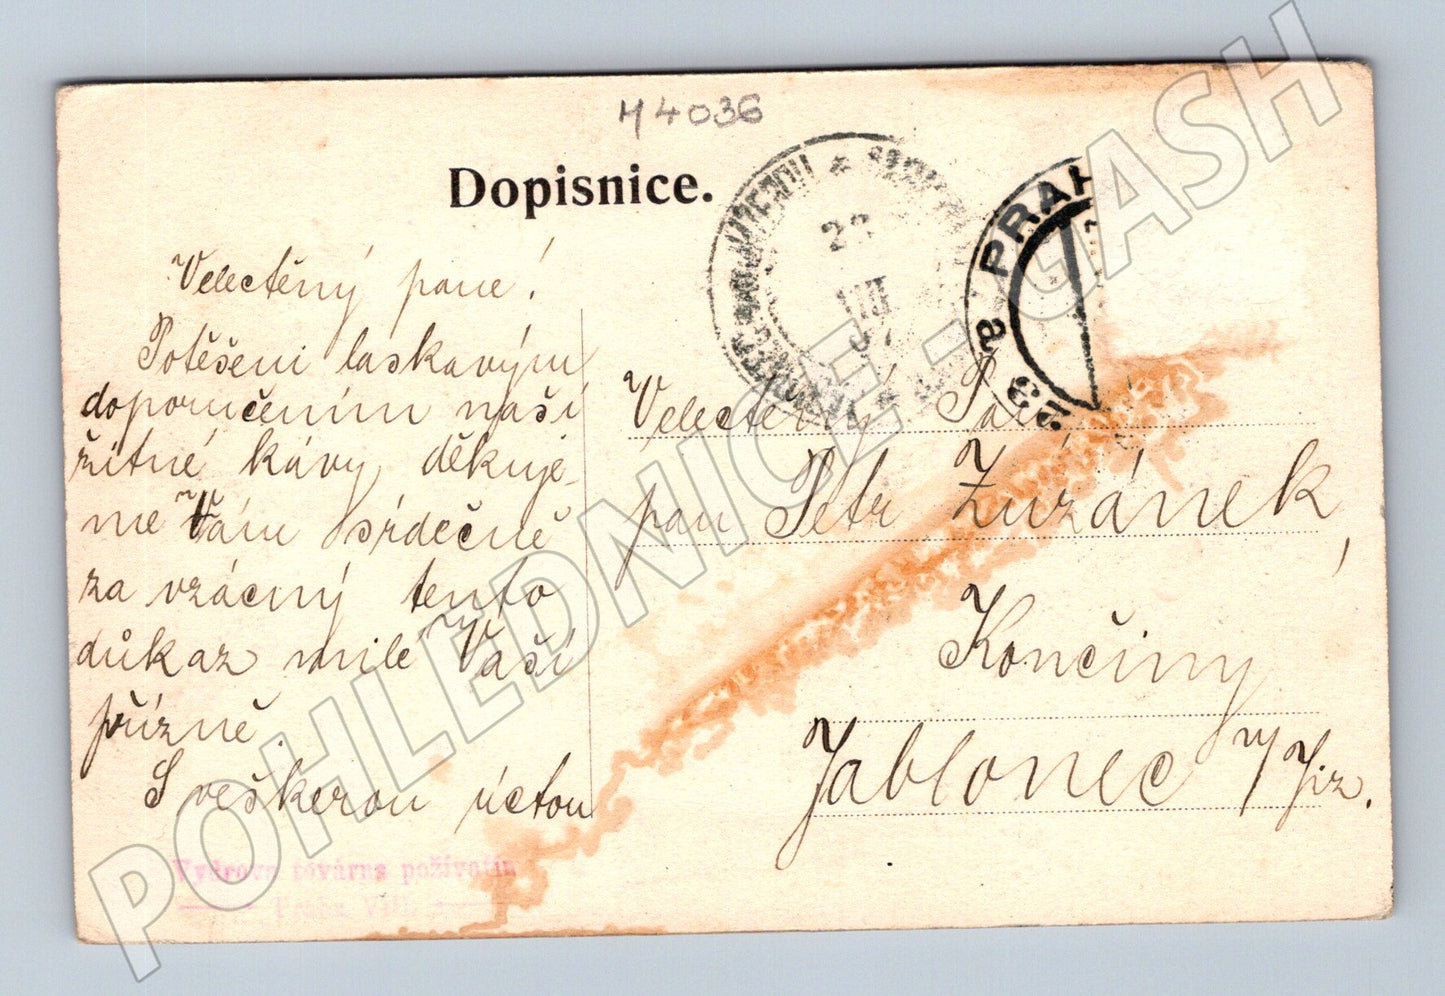 H4036
Dopisnice.
Velectěný pane!
Potěšeni laskavým
doporučením naší
žitné kávy děkuje-
me Vám srdečně
za vzácný tento
důkaz milé Vaší
přízně.
S veškerou úctou
Vydrova továrna poživatin
Praha VIII.
22
VIII
07
PRAH
a 8
Velectěný Pán
pan Petr Zuzánek,
Končiny
Jablonec n/Jiz.
POHLEDNICE - CASH